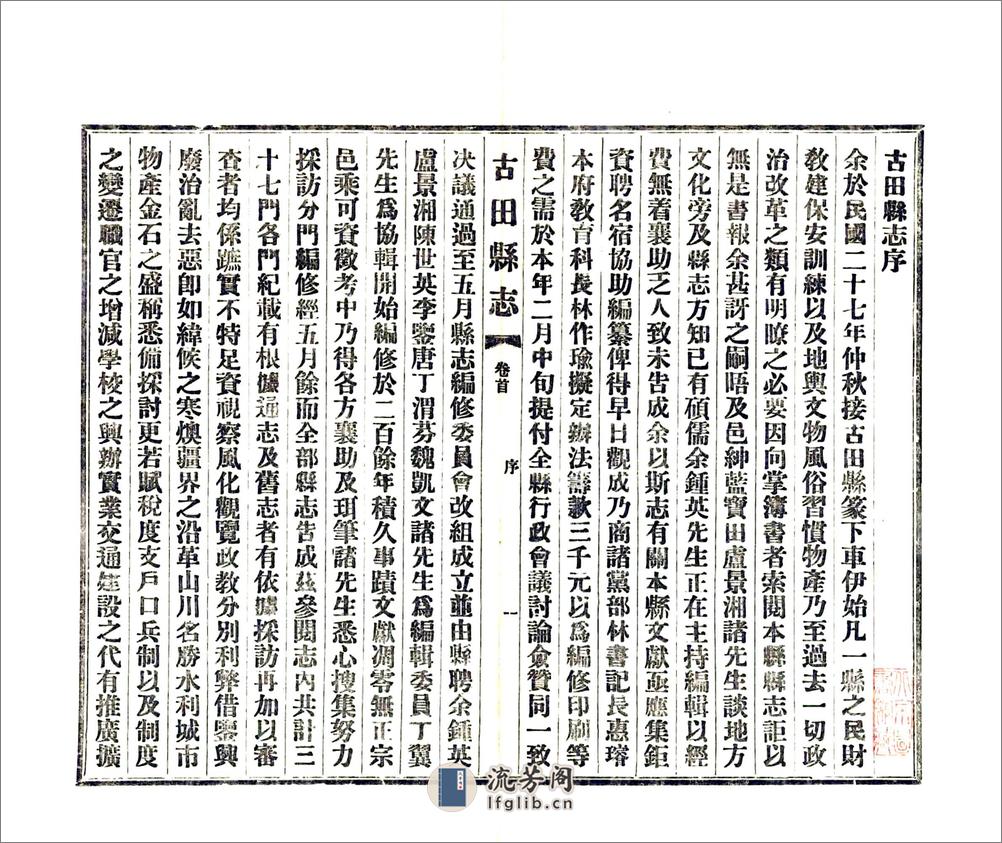 古田縣志序
余於民國二十七年仲秋接古田縣篆下車伊始凡一縣之民財
敎建保安訓練以及地輿文物風俗習慣物產乃至過去一切政
治改革之類有明瞭之必要因向掌簿書者索閱本縣縣志詎以
無是書報余甚訝之嗣晤及邑紳藍寶田盧景湘諸先生談地方
文化旁及縣志方知已有碩儒余鍾英先生正在主持編輯以經
費無着襄助乏人致未告成余以斯志有關本縣文獻亟應集鉅
資聘名宿協助編纂俾得早日觀成乃商諸黨部林書記長惠瑢
本府敎育科長林作瑜擬定辦法籌款三千元以爲編修印刷等
費之需於本年二月中旬提付全縣行政會議討論僉贊同一致
古田縣志
卷首
序
一
决議通過至五月縣志編修委員會改組成立並由縣聘余鍾英
盧景湘陳世英李鑒唐丁渭芬魏凱文諸先生爲編輯委員丁翼
先生爲協輯開始編修於二百餘年積久事蹟文獻凋零無正宗
邑乘可資徵考中乃得各方襄助及珥筆諸先生悉心搜集努力
採訪分門編修經五月餘而全部縣志告成茲參閱志內共計三
十七門各門紀載有根據通志及舊志者有依據採訪再加以審
查者均係蹠實不特足資視察風化觀覽政敎分別利弊借鑒興
廢治亂去惡卽如緯候之寒燠疆界之沿革山川名勝水利城市
物產金石之盛稱悉備探討更若賦稅度支戶口兵制以及制度
之變遷職官之增減學校之興辦實業交通建設之代有推廣擴
流芳阁
lfglib.cn